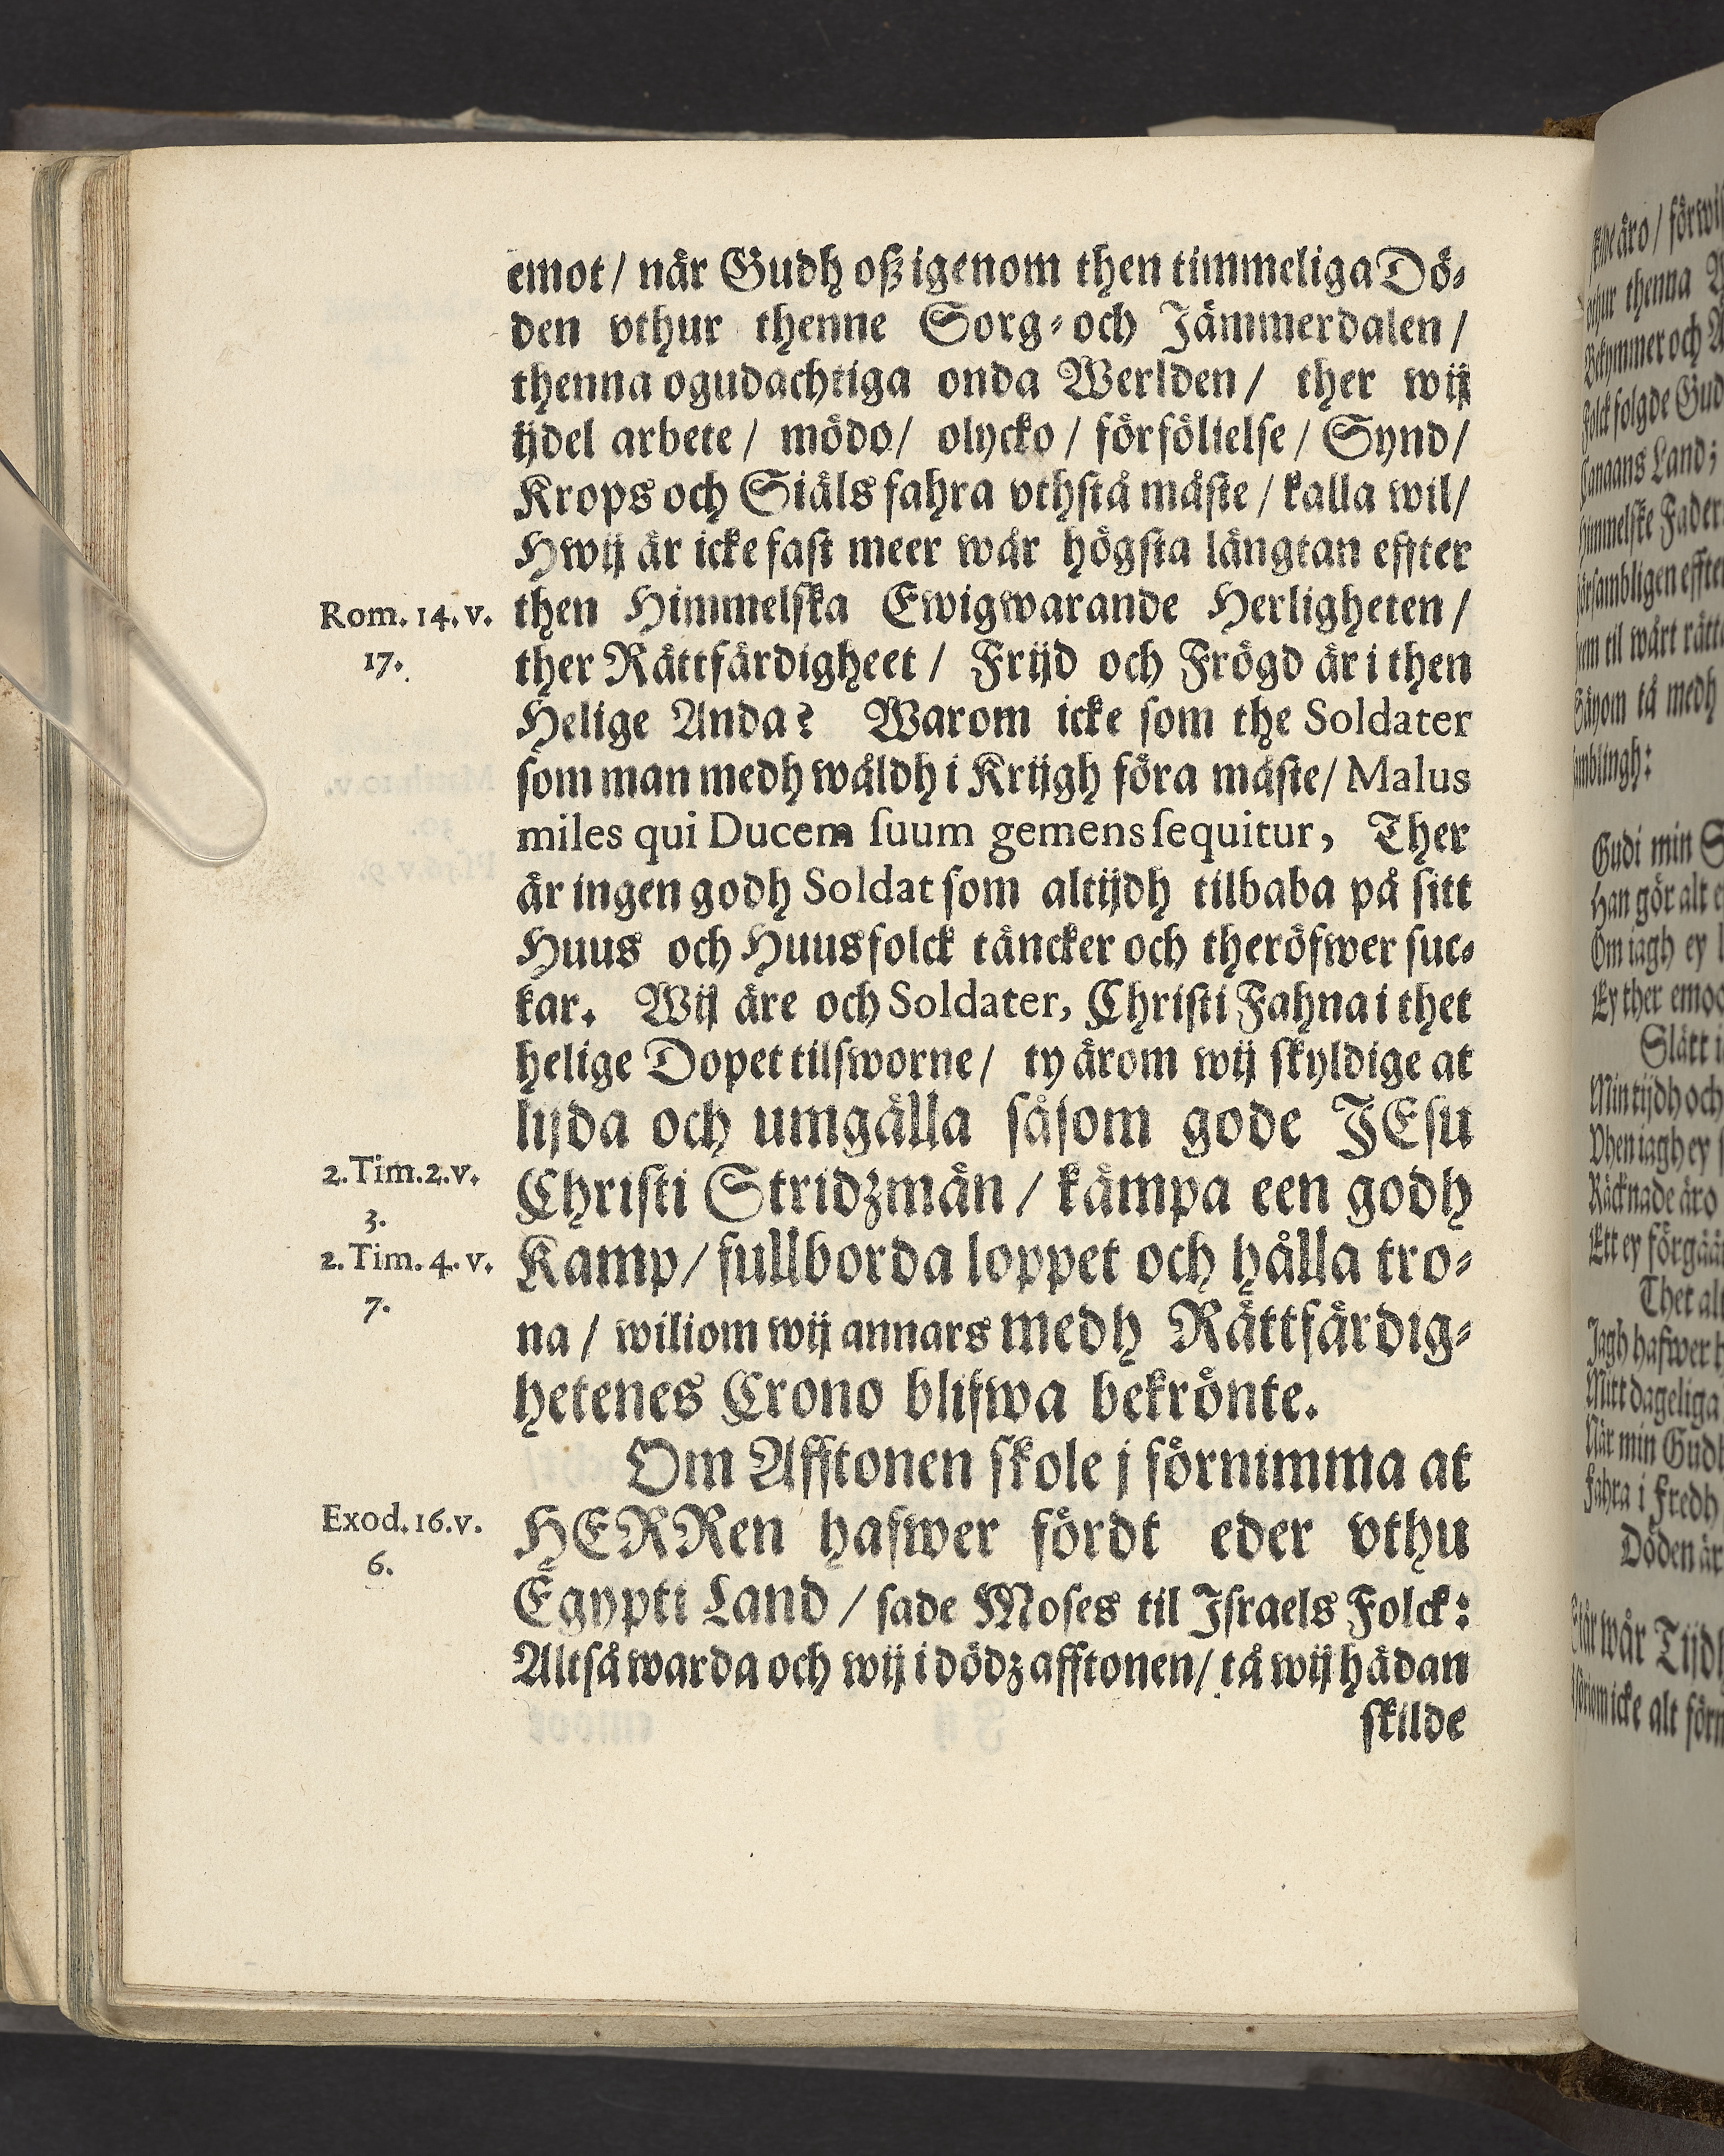 emot / när Gudh oß igenom then timmeliga Dö-
den vthur thenne Sorg- och Jämmerdalen /
thenna ogudachtiga onda Werlden / ther wij
ijdel arbete / mödo / olycko / förfölielse / Synd /
Krops och Siäls fahra vthstå måste / kalla wil /
Hwij är icke fast meer wår högsta längtan effter
Rom. 14. v. then Himmelska Ewigwarande Herligheten /
17. ther Rättfärdigheet / Frijd och Frögd är i then
Helige Anda? Warom icke som the Soldater
som man medh wåldh i Krijgh föra måste / Malus
miles qui Ducem suum gemens sequitur, Ther
är ingen godh Soldat som altijdh tilbaba på sitt
Huus och Huusfolck täncker och theröfwer suc-
kar. Wij äre och Soldater, Christi Fahna i thet
helige Dopet tilsworne / ty ärom wij skyldige at
lijda och umgälla såsom gode JEsu
2. Tim. 2. v. Christi Stridzmän / kämpa een godh
3.
2. Tim. 4. v. Kamp / fullborda loppet och hålla tro-
7.
na / wiliom wij annars medh Rättfärdig-
hetenes Crono blifwa bekrönte.
Om Afftonen skole j förnimma at
Exod. 16. v. HERRen hafwer fördt eder vthu
6.
Egypti Land / sade Moses til Israels Folck:
Altså warda och wij i dödz afftonen / tå wij hädan
skilde
äro /
thenna
och
folgde
Land;
til wårt
tå medh
Gudi min
Han gör alt
Om iagh ey
Ey ther
Slätt
Min tijdh och
iagh ey
äro
Thet
Jagh hafwer
dageliga
När min
Fahra i Fredh
Döden är
wår
icke alt